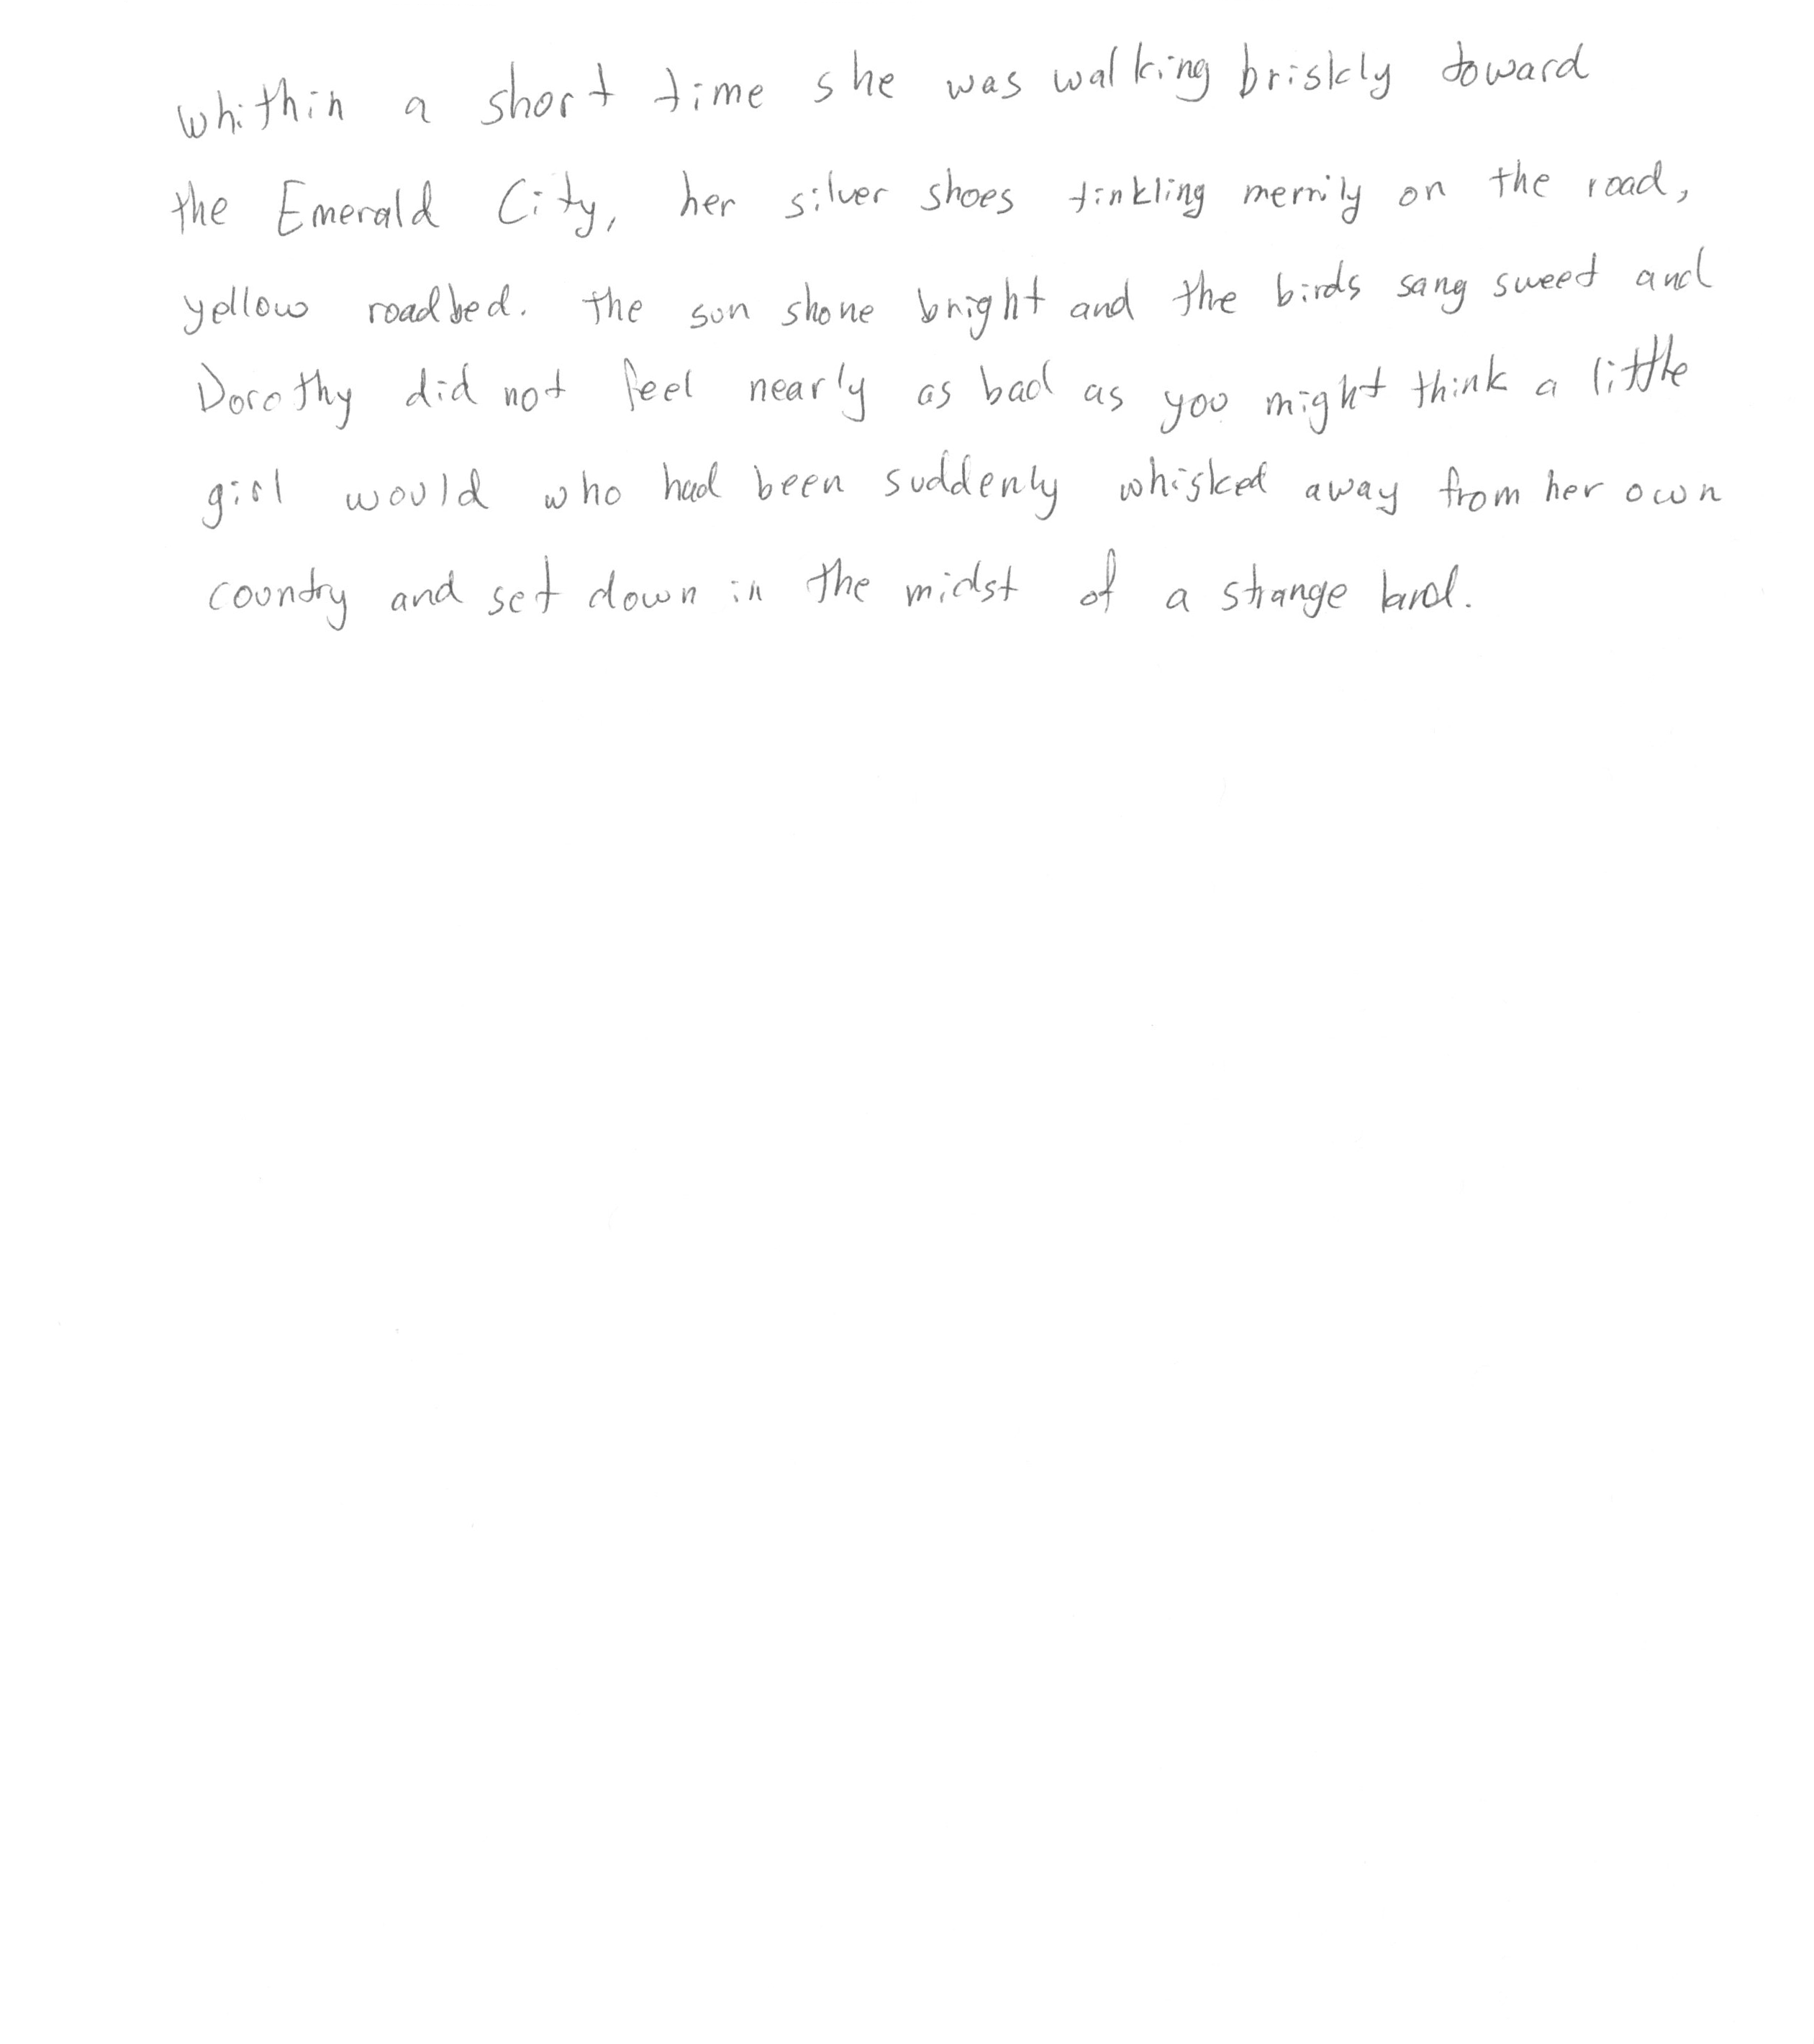 whithin a short time she was walking briskly toward
the Emerald City, her silver shoes tinkling merrily on the road,
yellow roadbed. the sun shone bright and the birds sang sweet and
Dorothy did not feel nearly as bad as you might think a little
girl would who had been suddenly whisked away from her own
country and set down in the midst of a strange land.